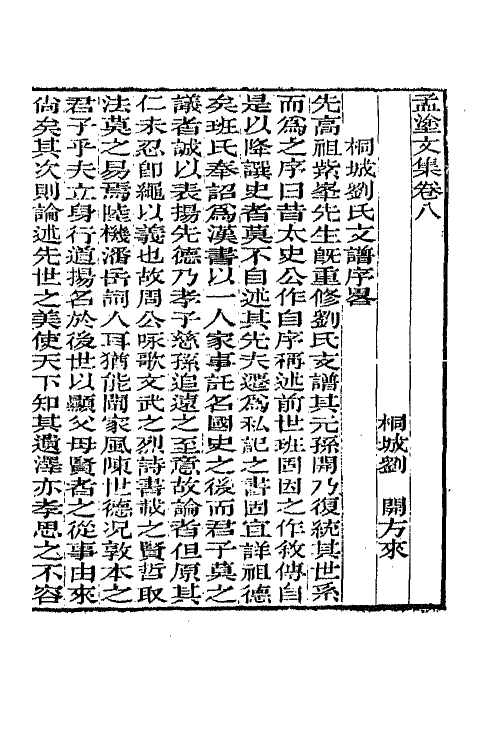 孟塗文集卷八
桐城劉　開方來
桐城劉氏支譜序畧
先高祖紫峯先生旣重修劉氏支譜其元孫開乃復統其世系
而爲之序曰昔太史公作自序稱述前世班固因之作敘傳自
是以降譔史者莫不自述其先夫遷爲私記之書固宜詳祖德
矣班氏奉詔爲漢書以一人家事託名國史之後而君子莫之
議者誠以表揚先德乃孝子慈孫追遠之至意故論者但原其
仁未忍卽繩以義也故周公咏歌文武之烈詩書載之賢哲取
法莫之易焉陸機潘岳詞人耳猶能聞家風陳世德况敦本之
君子乎夫立身行道揚名於後世以顯父母賢者之從事由來
尙矣其次則論述先世之美使天下知其遺澤亦孝思之不容